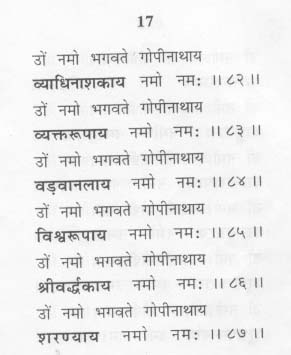 17
उों नमो भगवते गोपीनाथाय
व्याधिनाशकाय नमो नमः ।। ८२ ।।
उों नमो भगवते गोपीनाथाय
व्यक्तरूपाय नमो नमः ।। ८३ ।।
उों नमो भगवते गोपीनाथाय
वड़वानलाय नमो नमः ।। ८४ ।।
उों नमो भगवते गोपीनाथाय
विश्वरूपाय नमो नमः ।। ८५ ।।
उों नमो भगवते गोपीनाथाय
श्रीवर्द्धकाय नमो नमः ।। ८६ ।।
उों नमो भगवते गोपीनाथाय
शरण्याय नमो नमः ।। ८७ ।।